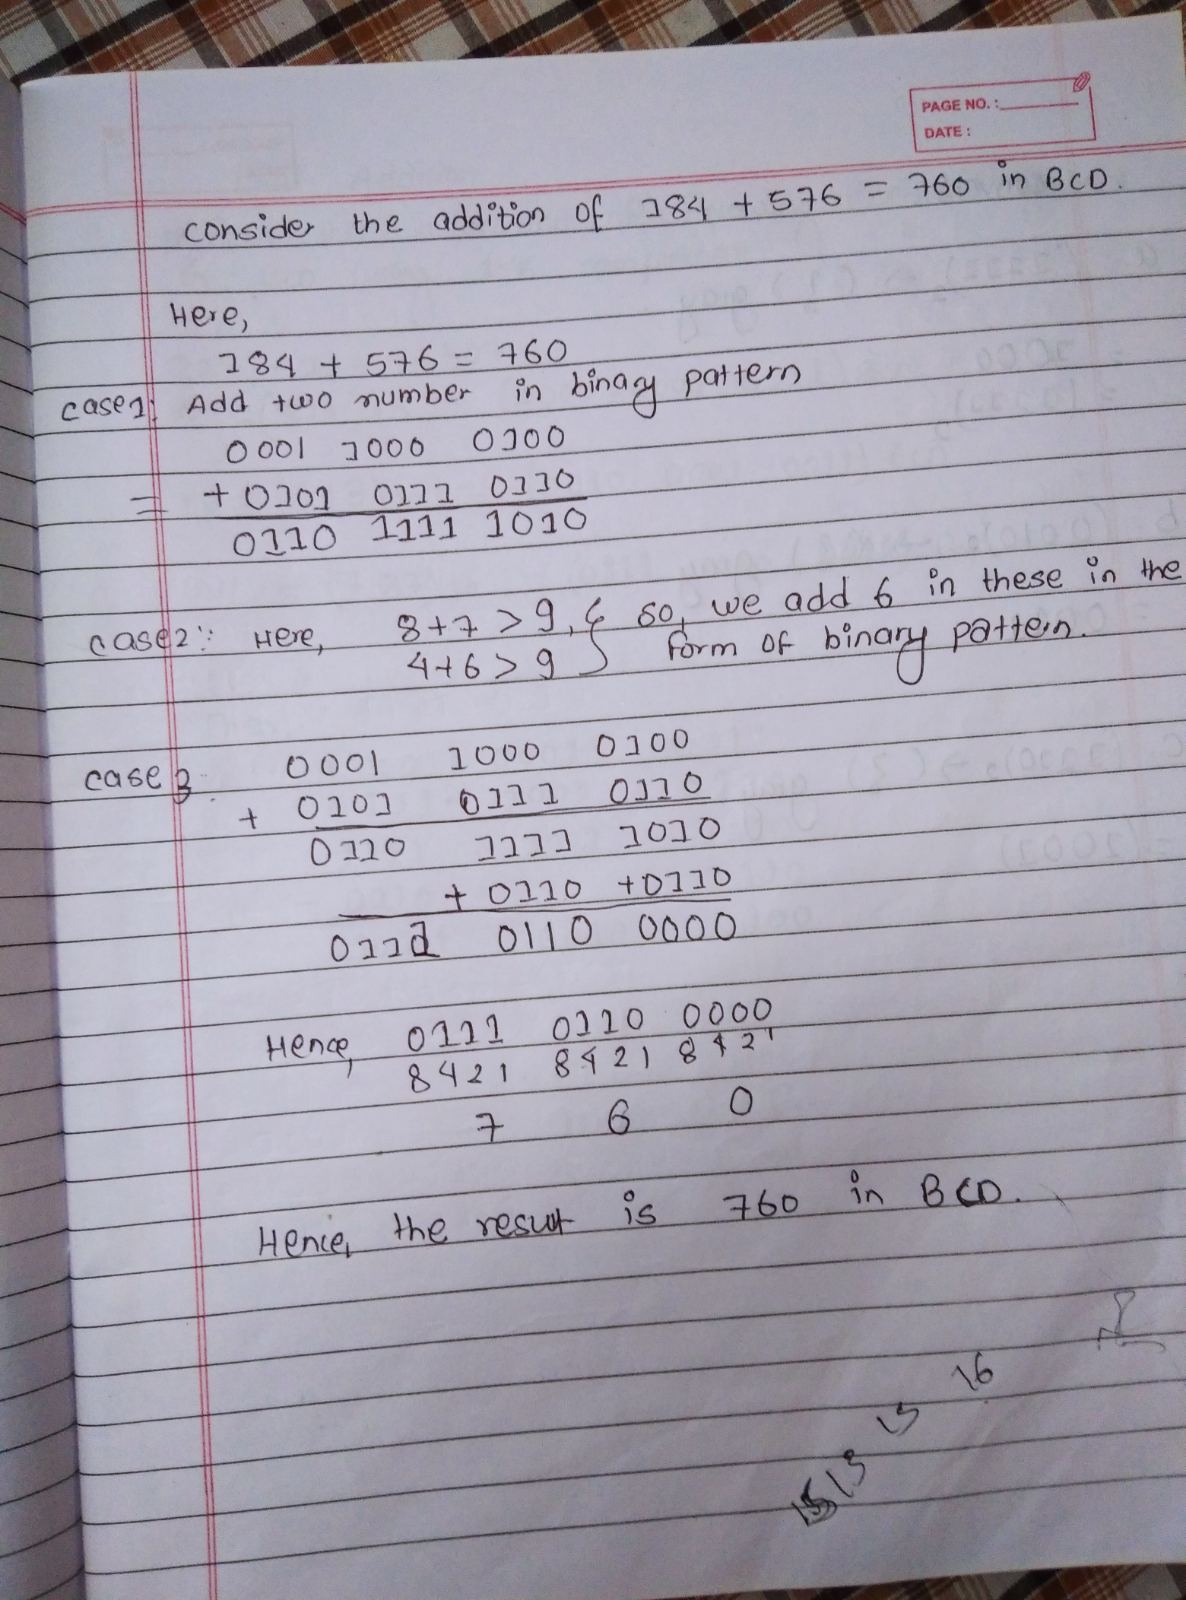 PAGE NO. :
DATE :
consider the addition of 184 + 576 = 760 in BCD.
Here,
184 + 576 = 760
case1: Add two number in binary pattern
0001 1000 0100
= + 0101 0111 0110
0110 1111 1010
case2:: Here, 8+7 > 9, & so, we add 6 in these in the
4+6 > 9 form of binary pattern.
case 3 0001 1000 0100
+ 0101 0111 0110
0110 1111 1010
+ 0110 +0110
0111 0110 0000
Hence, 0111 0110 0000
8421 8421 8421
7 6 0
Hence, the result is 760 in BCD.
16
15
13